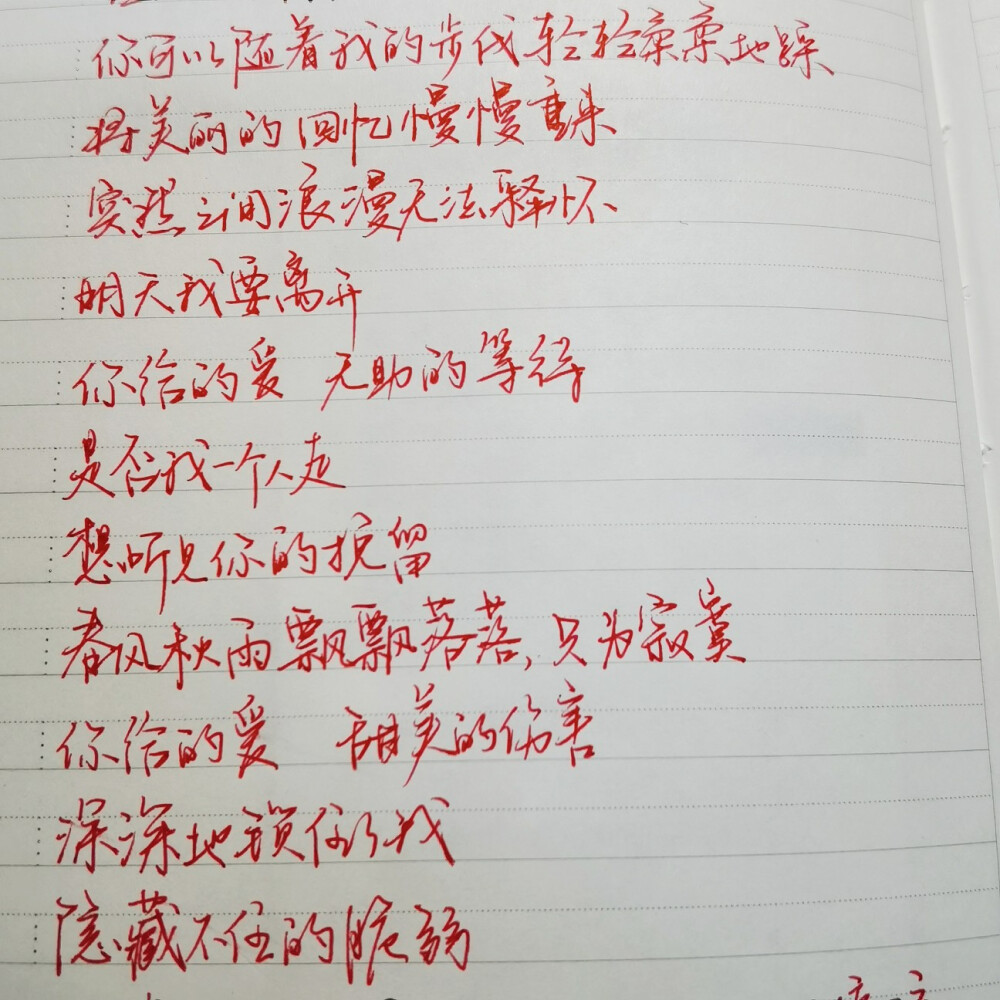 你可以随着我的步伐轻轻柔柔地踩
将美丽的回忆慢慢重来
突然之间浪漫无法释怀
明天我要离开
你给的爱 无助的等待
是否我一个人走
想听见你的挽留
春风秋雨飘飘落落,只为寂寞
你给的爱 甜美的伤害
深深地锁住了我
隐藏不住的脆弱